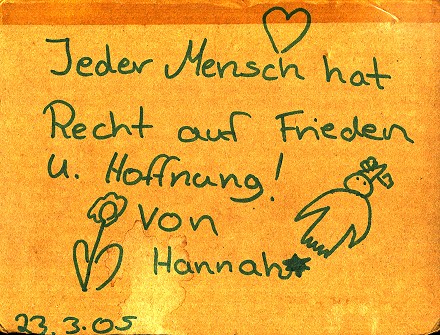 Jeder Mensch hat
Recht auf Frieden
u. Hoffnung!
von
Hannah
23.3.05